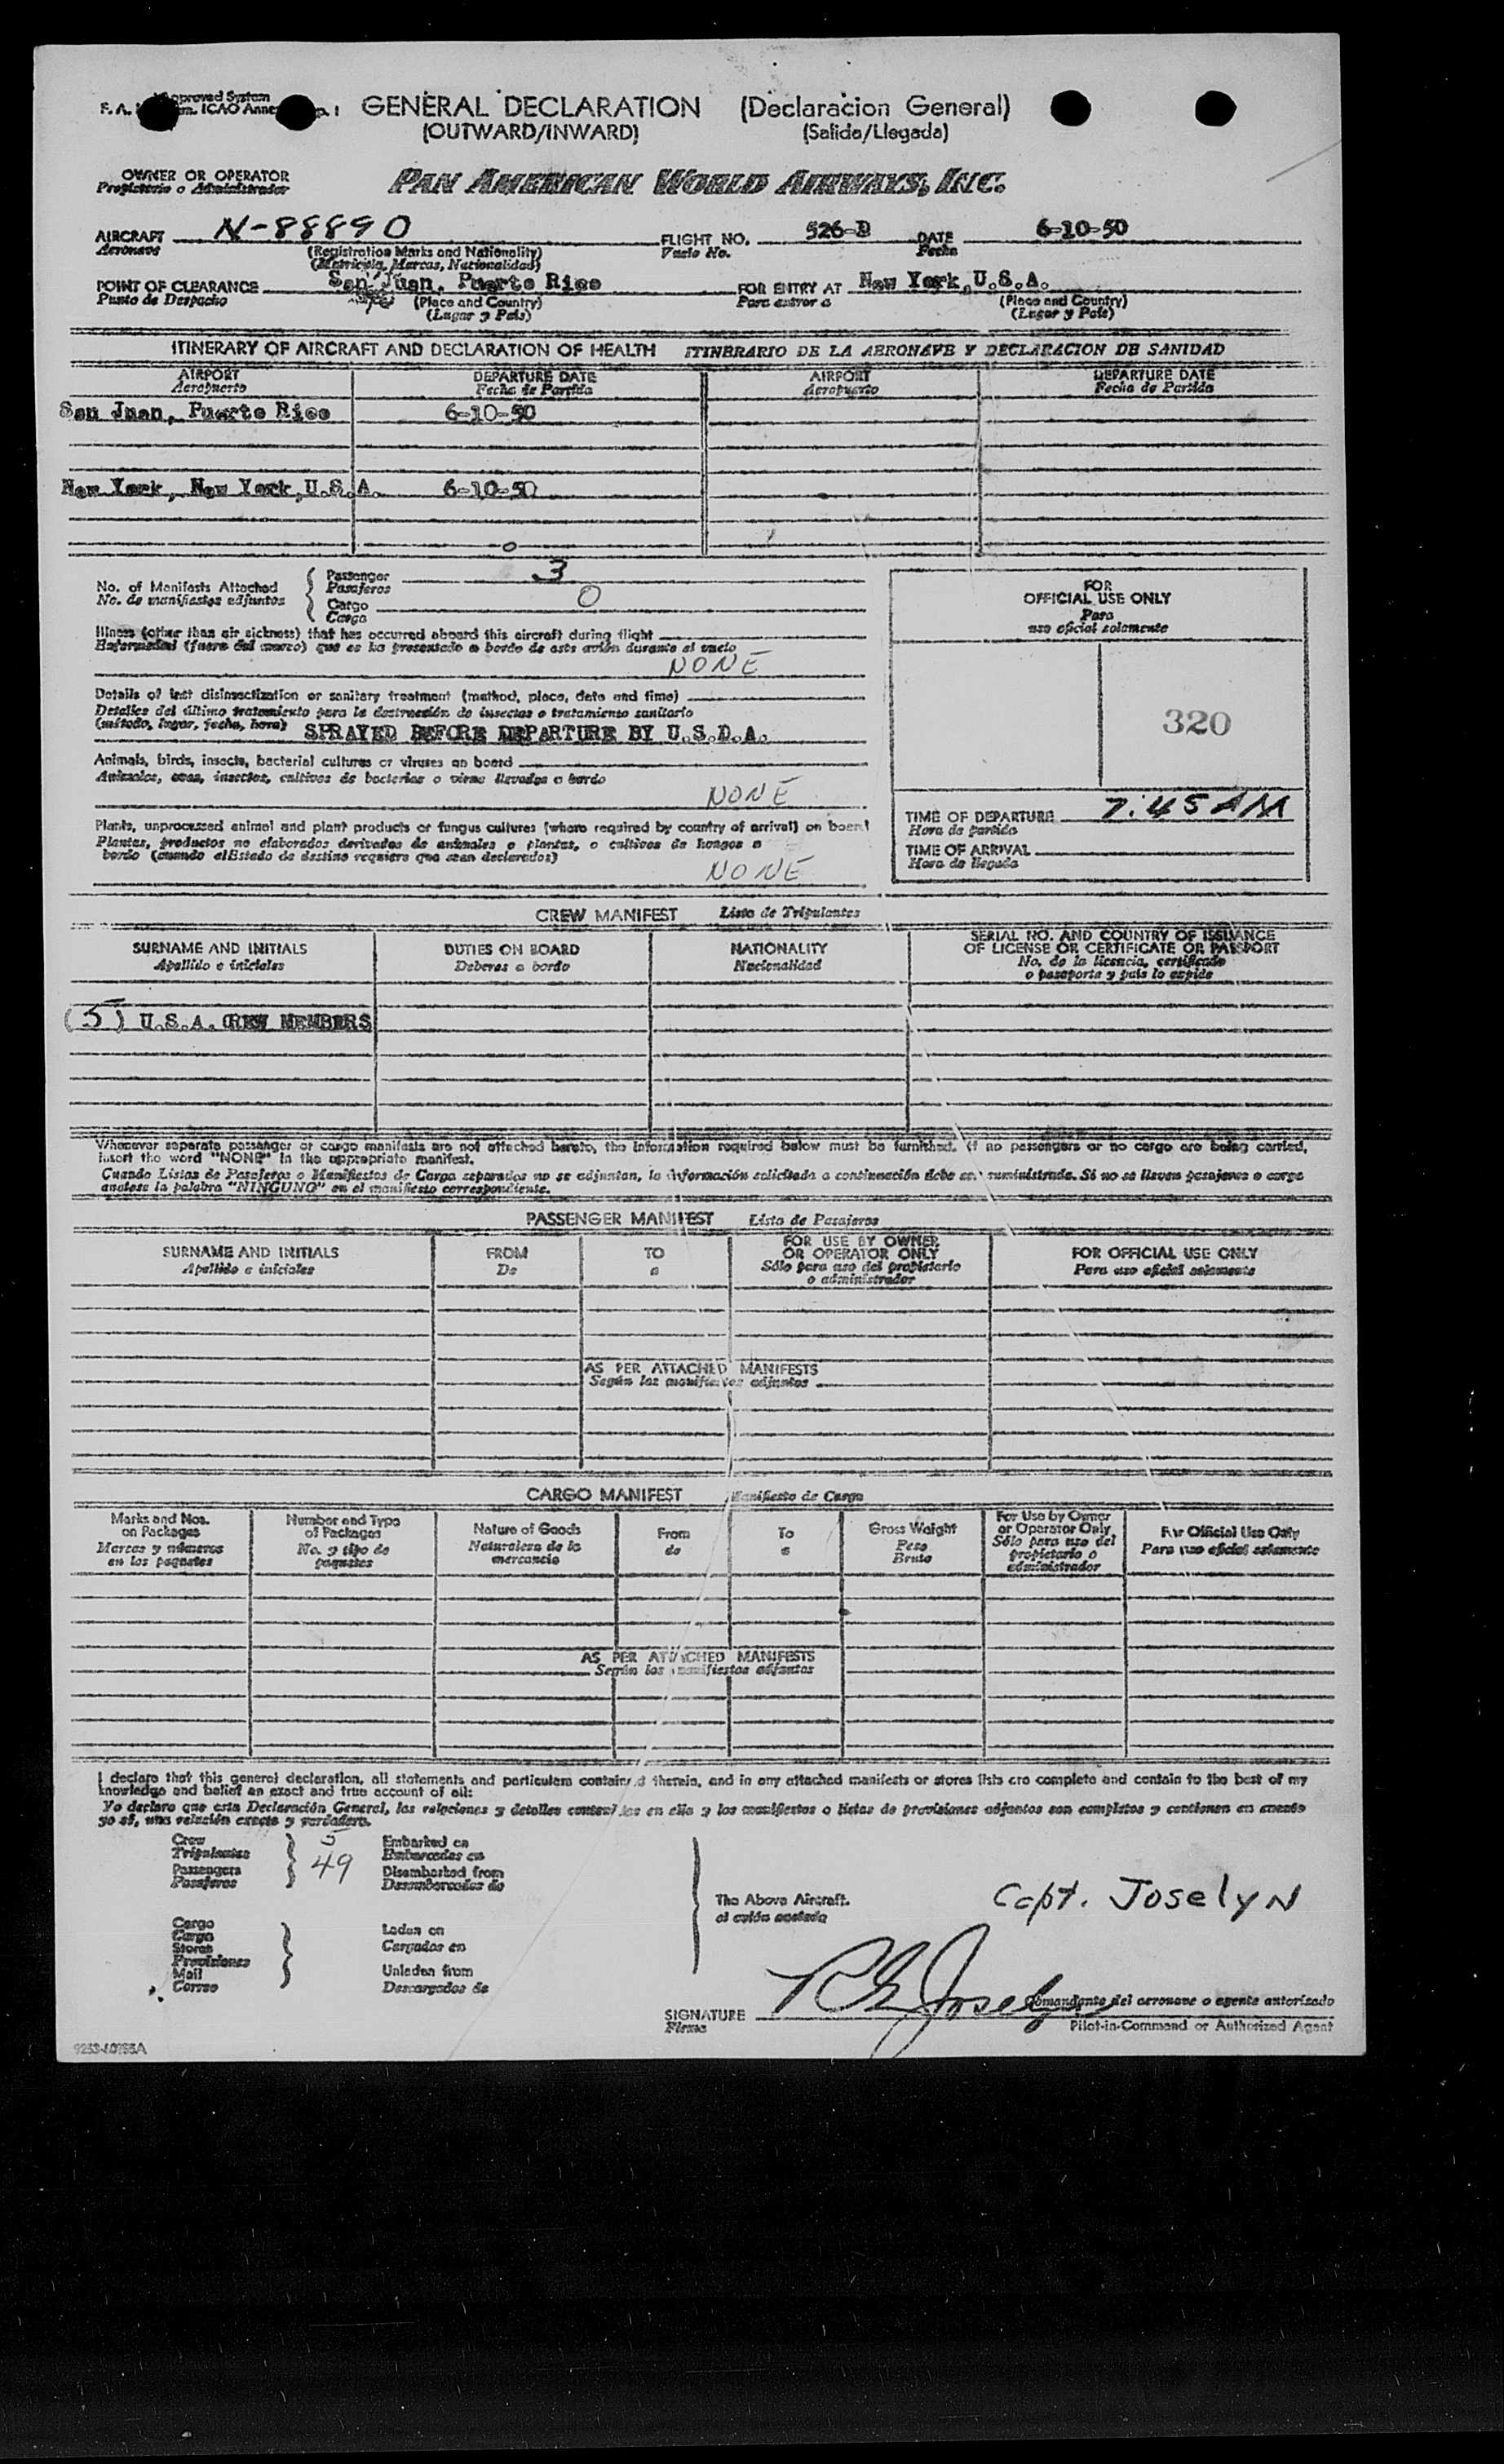 Approved System
F. A. ICAO Anne
GENERAL DECLARATION (Declaracion General)
(OUTWARD/INWARD) (Salida/Llegada)
OWNER OR OPERATOR
Propietario o Administrador
PAN AMERICAN WORLD AIRWAYS, INC.
AIRCRAFT N-88890 FLIGHT NO. 526-B DATE 6-10-50
Aeronave (Registration Marks and Nationality) Vuelo No. Fecha
(Matricula, Marcas, Nacionalidad)
POINT OF CLEARANCE San Juan, Puerto Rico FOR ENTRY AT New York, U.S.A.
Punto de Despacho (Place and Country) Para entrar a (Place and Country)
(Lugar y País) (Lugar y País)
ITINERARY OF AIRCRAFT AND DECLARATION OF HEALTH ITINERARIO DE LA AERONAVE Y DECLARACION DE SANIDAD
AIRPORT DEPARTURE DATE AIRPORT DEPARTURE DATE
Aeropuerto Fecha de Partida Aeropuerto Fecha de Partida
San Juan, Puerto Rico 6-10-50
New York, New York, U.S.A. 6-10-50
No. of Manifests Attached Passenger 3
No. de manifiestos adjuntos Pasajeros
Cargo 0
Carga
FOR
OFFICIAL USE ONLY
Para
uso oficial solamente
320
Illness (other than air sickness) that has occurred aboard this aircraft during flight
Enfermedad (fuera del mareo) que se ha presentado a bordo de este avión durante el vuelo
NONE
Details of last disinsectization or sanitary treatment (method, place, date and time)
Detalles del último tratamiento para la destrucción de insectos o tratamiento sanitario
(método, lugar, fecha, hora) SPRAYED BEFORE DEPARTURE BY U.S.D.A.
Animals, birds, insects, bacterial cultures or viruses on board
Animales, aves, insectos, cultivos de bacterias o virus llevados a bordo
NONE
TIME OF DEPARTURE 7:45 AM
Hora de partida
TIME OF ARRIVAL
Hora de llegada
Plants, unprocessed animal and plant products or fungus cultures (where required by country of arrival) on board
Plantas, productos no elaborados derivados de animales o plantas, o cultivos de hongos a
bordo (cuando el Estado de destino requiere que sean declarados)
NONE
CREW MANIFEST Lista de Tripulantes
SURNAME AND INITIALS DUTIES ON BOARD NATIONALITY SERIAL NO. AND COUNTRY OF ISSUANCE
Apellido e iniciales Deberes a bordo Nacionalidad OF LICENSE OR CERTIFICATE OR PASSPORT
No. de la licencia, certificado
o pasaporte y país lo expide
(5) U.S.A. CREW MEMBERS
Whenever separate passenger or cargo manifests are not attached hereto, the information required below must be furnished. If no passengers or no cargo are being carried,
insert the word "NONE" in the appropriate manifest.
Cuando Listas de Pasajeros o Manifiestos de Carga separados no se adjuntan, la información solicitada a continuación debe ser suministrada. Si no se llevan pasajeros o carga
anótese la palabra "NINGUNO" en el manifiesto correspondiente.
PASSENGER MANIFEST Lista de Pasajeros
SURNAME AND INITIALS FROM TO FOR USE BY OWNER FOR OFFICIAL USE ONLY
Apellido e iniciales De a OR OPERATOR ONLY Para uso oficial solamente
Sólo para uso del propietario
o administrador
AS PER ATTACHED MANIFESTS
Según los manifiestos adjuntos
CARGO MANIFEST Manifiesto de Carga
Marks and Nos. on Packages Number and Type of Packages Nature of Goods From To Gross Weight For Use by Owner or Operator Only For Official Use Only
Marcas y números en los paquetes No. y tipo de paquetes Naturaleza de la mercancia de a Peso Bruto Sólo para uso del propietario o administrador Para uso oficial solamente
AS PER ATTACHED MANIFESTS
Según los manifiestos adjuntos
I declare that this general declaration, all statements and particulars contained therein, and in any attached manifests or stores lists are complete and contain to the best of my
knowledge and belief an exact and true account of all:
Yo declaro que esta Declaración General, las relaciones y detalles contenidos en ella y los manifiestos o listas de provisiones adjuntos son completos y contienen en cuanto
yo sé, una relación exacta y verdadera.
Crew 5 Embarked on
Tripulantes Embarcados en
Passengers 49 Disembarked from
Pasajeros Desembarcados de
The Above Aircraft.
el avión anotado
Capt. Joselyn
Cargo Laden on
Carga Cargados en
Stores
Provisiones
Mail Unladen from
Correo Descargados de
SIGNATURE R E Joselyn Comandante del aeronave o agente autorizado
Firma Pilot-in-Command or Authorized Agent